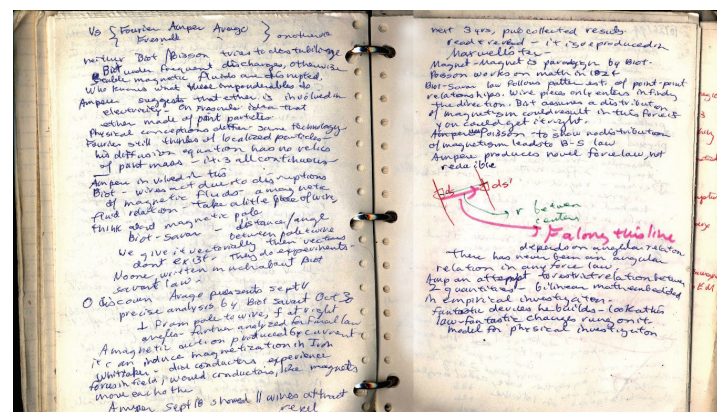 Vs { Fourier Amper Arago } on other side
Fresnell
neither Biot / Poisson tries to destabilize
Biot under frequent discharges, otherwise
stable magnetic fluids are disrupted,
Who knows what these imponderables do.
Ampere suggests that ether is involved in
electricity on Fresnel idea that
ether made of point particles
Physical conceptions differ same technology
Fourier still thinks of localized particles -
his diffusion equation has no relics
of point mass - it is all continuous
Ampere involved in this
Biot - wires act due to disruptions
of magnetic fluids - a magnetic
fluid relation - take a little piece of wire,
think about magnetic pole
Biot-Savar - distance/angle
between pole wire
We give it vectorially then vectors
dont exist. They do experiments -
No one written much about Biot
Savart law -
O discovers Arago presents Sept 4
precise analysis by Biot Savart Oct 30
⊥ from pole to wire, f at right
angles - further analyzed for final law
A magnetic action produced by current
it can induce magnetization in Iron
Whittaker - did conductors experience
forces in field, would conductors, like magnets
move each other
Amper Sept 18 showed || wires attract
repel
next 3 yrs, pub collected results
read & reread - it is reproduced in
Maxwell later
Magnet-Magnet is paradigm by Biot-
Poisson works on math in 1826
Biot-Sav law follows pattern est. of point-point
relationships. Wire piece only enters in finding
the direction. Biot assumes a distribution
of magnetism could result in this force is
you could get it right.
Amper Poisson - to show no distribution
of magnetism leads to B-S law
Ampere produces novel force law, not
reducible
ds ds'
r between
centers
F along this line
depends on angular relation
There has never been an angular
relation in any force law.
Amp an attempt to restrict relation between
2 quantities - bilinear math embedded
in empirical investigation -
fantastic devices he builds - look at his
law - fantastic changes rung on it -
model for physical investigation